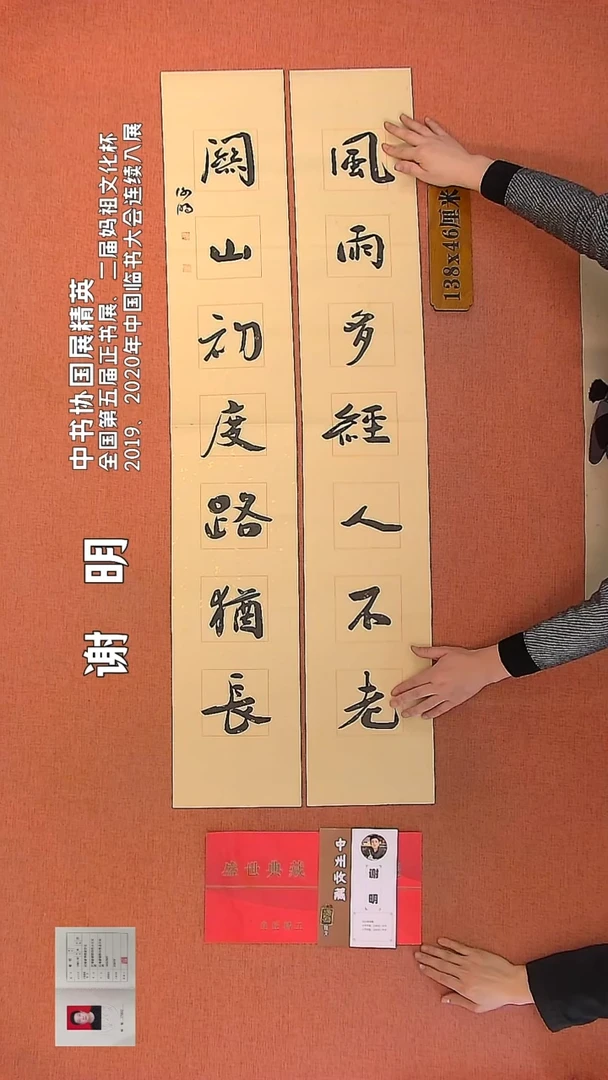 風雨多經人不老
關山初度路猶長
谢明
138x46厘米
中书协国展精英
全国第五届正书展、二届妈祖文化杯
2019、2020年中国临书大会连续入展
谢明
盛世典藏
中州收藏
谢明